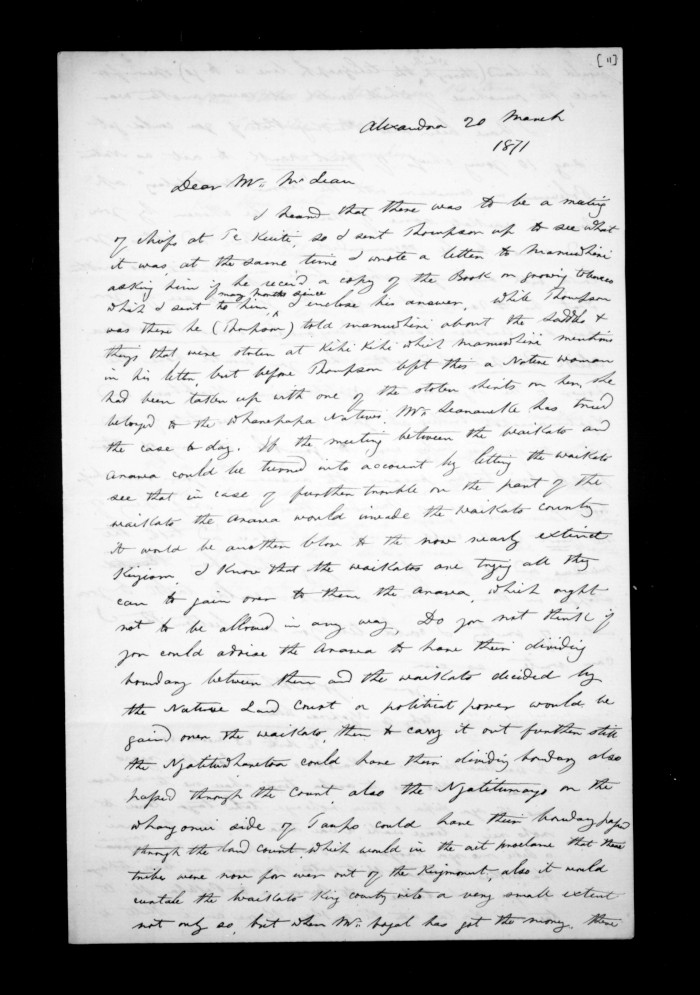 [11]
Alexandra 20 March
1871
Dear Mr. McLean
I heard that there was to be a meeting
of chiefs at Te Kuiti, so I sent Thompson up to see what
it was, at the same time I wrote a letter to Manuwhiri
asking him if he receiv'd a copy of the Book on growing tobacco
many months since
which I sent to him, I inclose his answer. While Thompson
was there he (Thompson) told manuwhiri about the saddles &
things that were stolen at Kihi Kihi which manuwhiri mentions
in his letter, but before Thompson left this a Native woman
had been taken up with one of the stolen shirts on her, she
belonged to the Native's. Mr. has tried
the case to day. If the meeting between the Waikato and
Arawa could be turned into account by letting the Waikato
see that in case of further trouble on the part of the
waikato the Arawa would invade the Waikato country
it would be another blow to the now nearly extinct
Kingism, I know that the waikatos are trying all they
can to gain over to them the Arawa, which ought
not to be allowed in any way, Do you not think if
you could advise the Arawa to have their dividing
boundary between them and the Waikato decided by
the Native Land Court a political power would be
gain'd over the Waikato, then to carry it out further still
the could have their dividing boundary also
passed through the Court also the on the
side of Taupo could have their boundary passed
through the land Court, which would in the act proclaim that these
tribes were now for ever out of the Kingmount, also it would
curtale the Waikato King county into a very small extent
not only so, but when Mr. has got the money, there